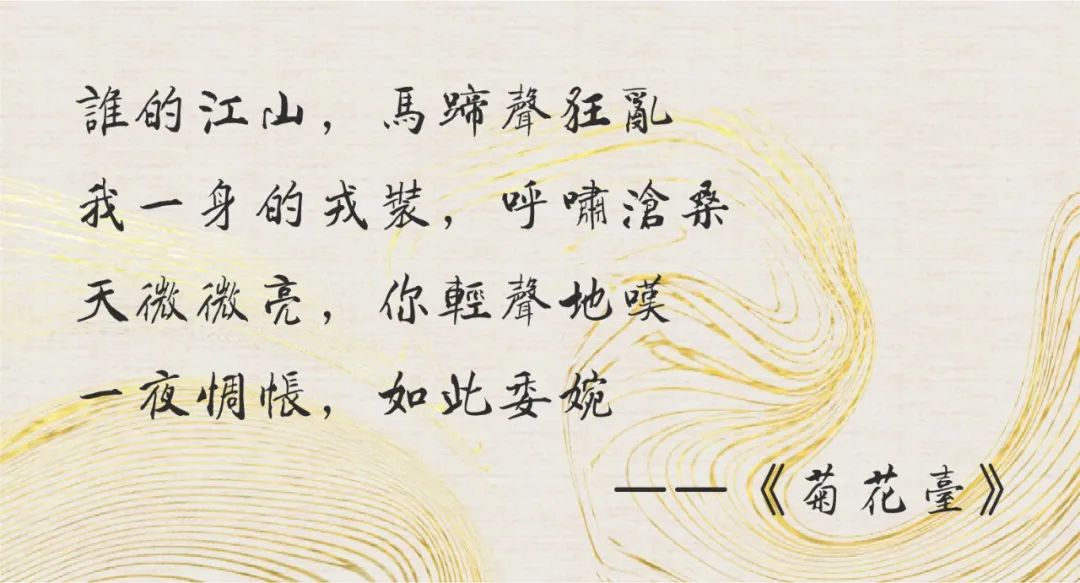 誰的江山，馬蹄聲狂亂
我一身的戎裝，呼嘯滄桑
天微微亮，你輕聲地嘆
一夜惆悵，如此委婉
——《菊花臺》